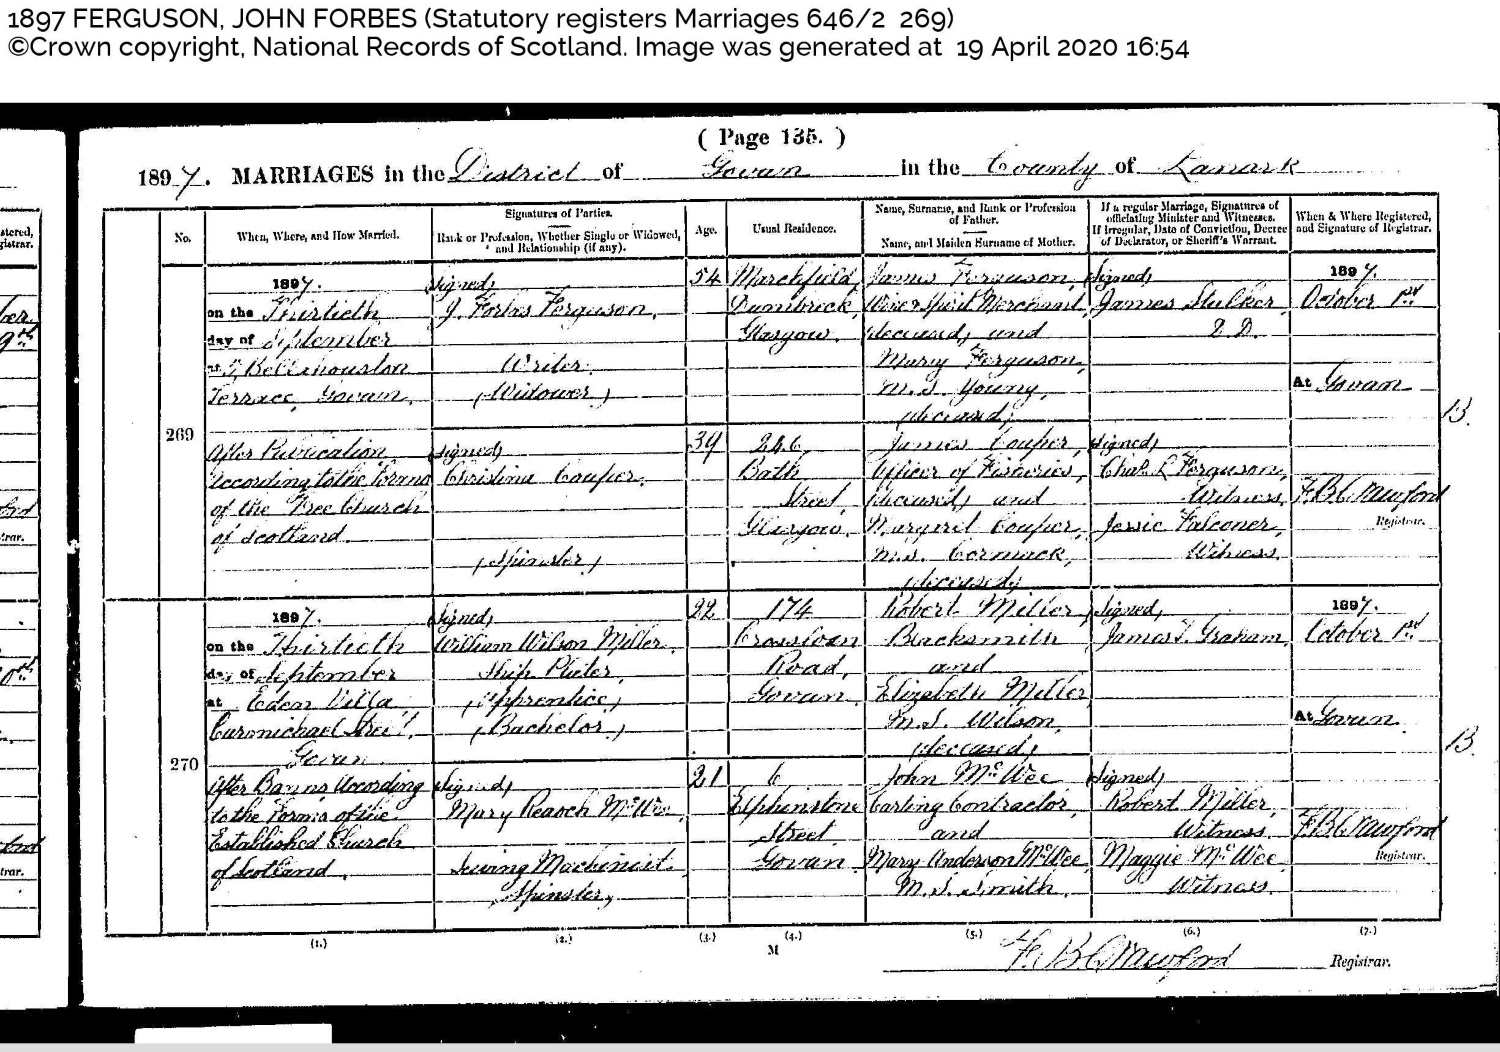 1897 FERGUSON, JOHN FORBES (Statutory registers Marriages 646/2 269)
©Crown copyright, National Records of Scotland. Image was generated at 19 April 2020 16:54
( Page 135. )
1897. MARRIAGES in the District of Govan in the County of Lanark
No.
When, Where, and How Married.
Signatures of Parties.
Rank or Profession, Whether Single or Widowed,
and Relationship (if any).
Age.
Usual Residence.
Name, Surname, and Rank or Profession
of Father.
Name, and Maiden Surname of Mother.
If a regular Marriage, Signatures of
officiating Minister and Witnesses.
If Irregular, Date of Conviction, Decree
of Declarator, or Sheriff's Warrant.
When & Where Registered,
and Signature of Registrar.
269
1897.
on the Thirtieth
day of September
at Bellahouston
Terrace, Govan.
After Publication
according to the Forms
of the Free Church
of Scotland.
(signed)
J. Forbes Ferguson,
Writer.
(Widower)
(signed)
Christina Couper.
(Spinster)
54
34
Dumbreck,
Glasgow.
246,
Bath
Street,
Glasgow.
James Ferguson,
Wine & Spirit Merchant,
(deceased) and
Mary Ferguson,
M.S. Young,
(deceased)
James Couper,
Officer of Fisheries,
(deceased) and
Margaret Couper,
M.S. Cormack,
(deceased)
(signed)
James Stalker
D.D.
(signed)
Chas. L. Ferguson,
Witness.
Jessie Falconer,
Witness.
1897.
October 1st
At Govan
F. B. Crawford
Registrar.
B.
270
1897.
on the Thirtieth
day of September
at Edgar Villa
Carmichael Street,
Govan
After Banns According
to the Forms of the
Established Church
of Scotland.
(Signed)
William Wilson Miller.
Ship Plater,
(Apprentice)
(Bachelor)
(Signed)
Mary Reasch McWee.
Sewing Machinist
(Spinster)
22
21
174
Crossloan
Road,
Govan.
6
Elphinstone
Street
Govan.
Robert Miller
Blacksmith
and
Elizabeth Miller
M.S. Wilson,
(deceased)
John McWee
Carting Contractor
and
Mary Anderson McWee
M.S. Smith.
(Signed)
James Graham.
(Signed)
Robert Miller,
Witness.
Maggie McWee
Witness.
1897.
October 1st
At Govan.
F. B. Crawford
Registrar.
B.
(1.) (2.) (3.) (4.) (5.) (6.) (7.)
M
F. B. Crawford Registrar.